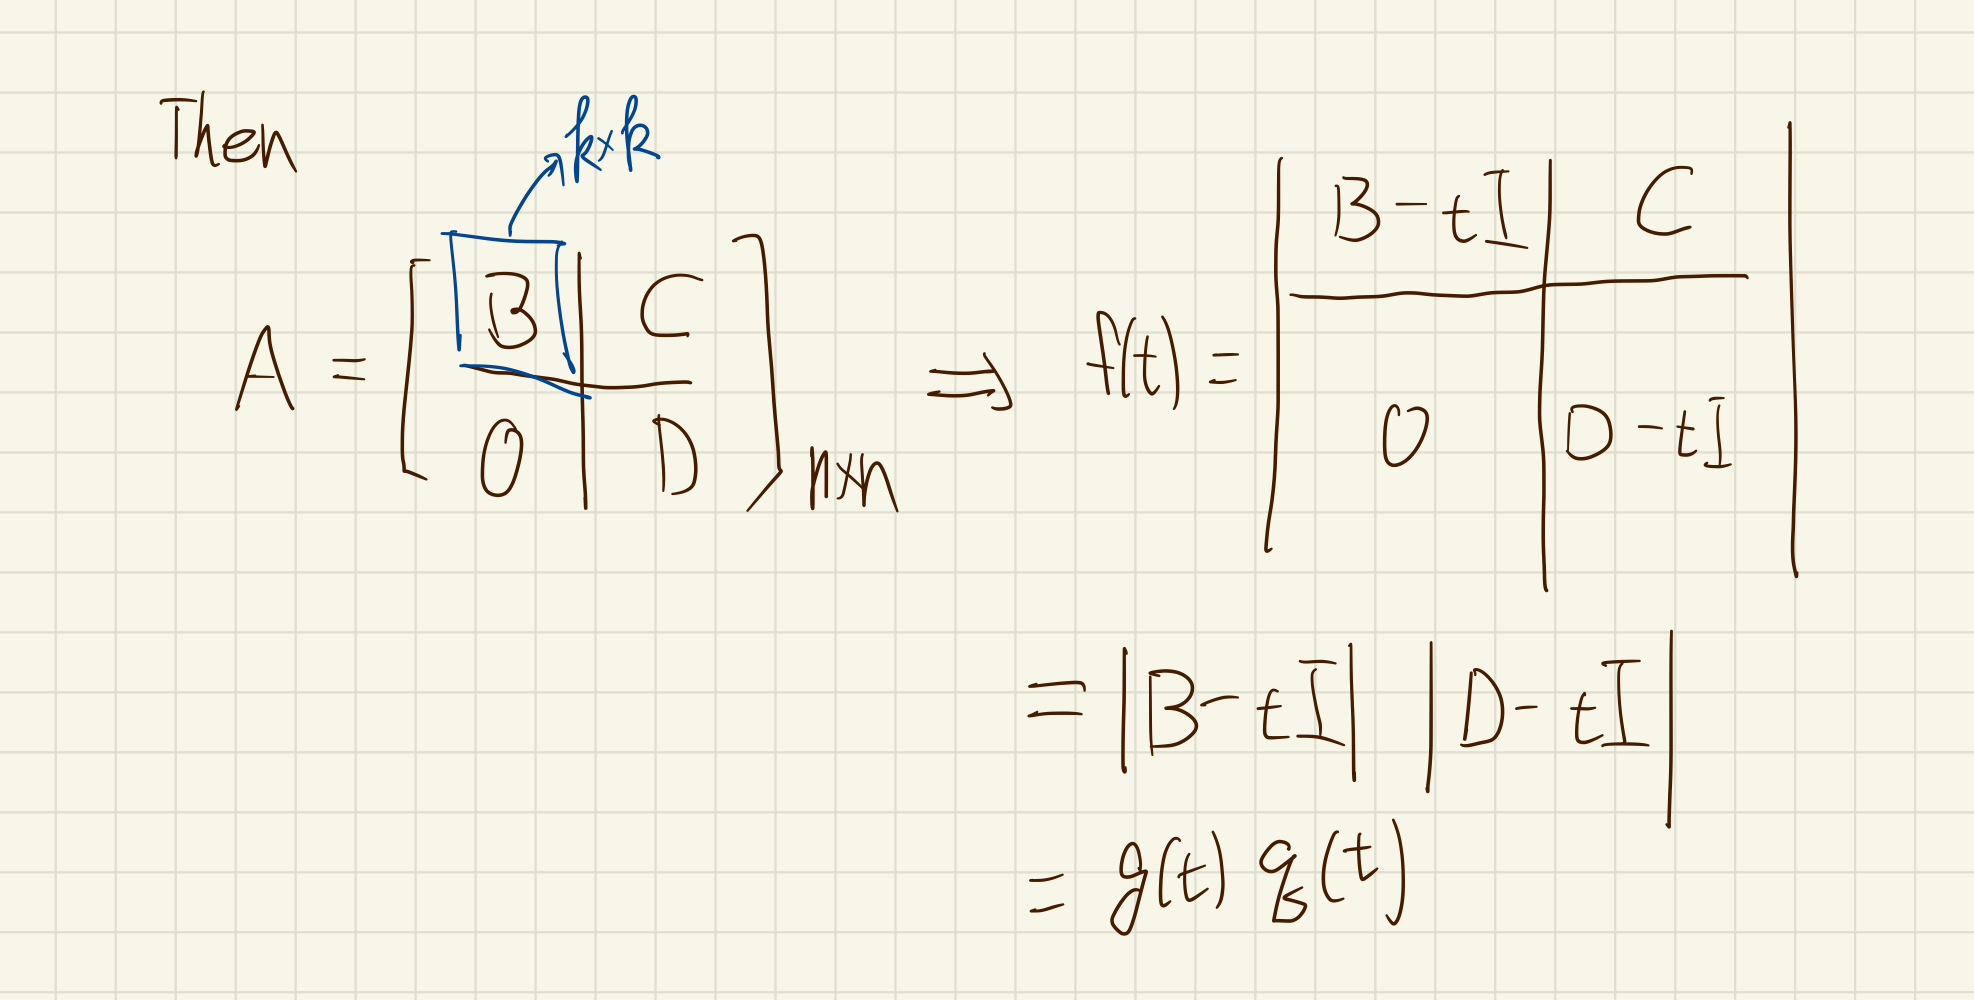 Then
k×k
A = [ B | C ; O | D ] n×n ⇒ f(t) = | B - tI | C ; O | D - tI |
= |B - tI| |D - tI|
= g(t) q(t)